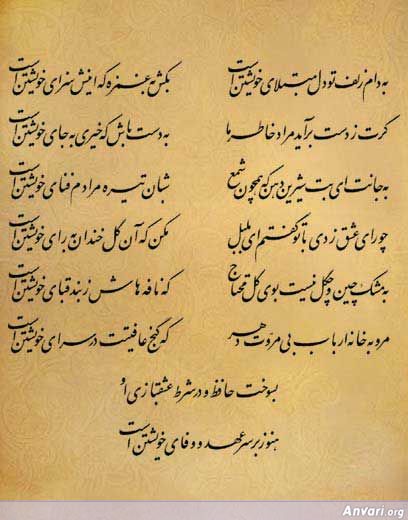 به دام زلف تو دل مبتلای خویشتن است بکش به غمزه که اینش سزای خویشتن است
گرت ز دست برآید مراد خاطر ما به دست باش که خیری به جای خویشتن است
به جانت ای بت شیرین دهن که همچون شمع شبان تیره مرادم فنای خویشتن است
چو رای عشق زدی با تو گفتم ای بلبل مکن که آن گل خندان به رای خویشتن است
به مشک چین و چگل نیست بوی گل محتاج که نافه هاش ز بند قبای خویشتن است
مرو به خانه ارباب بی مروت دهر که گنج عافیتت در سرای خویشتن است
بسوخت حافظ و در شرط عشقبازی او
هنوز بر سر عهد و وفای خویشتن است
Anvari.org